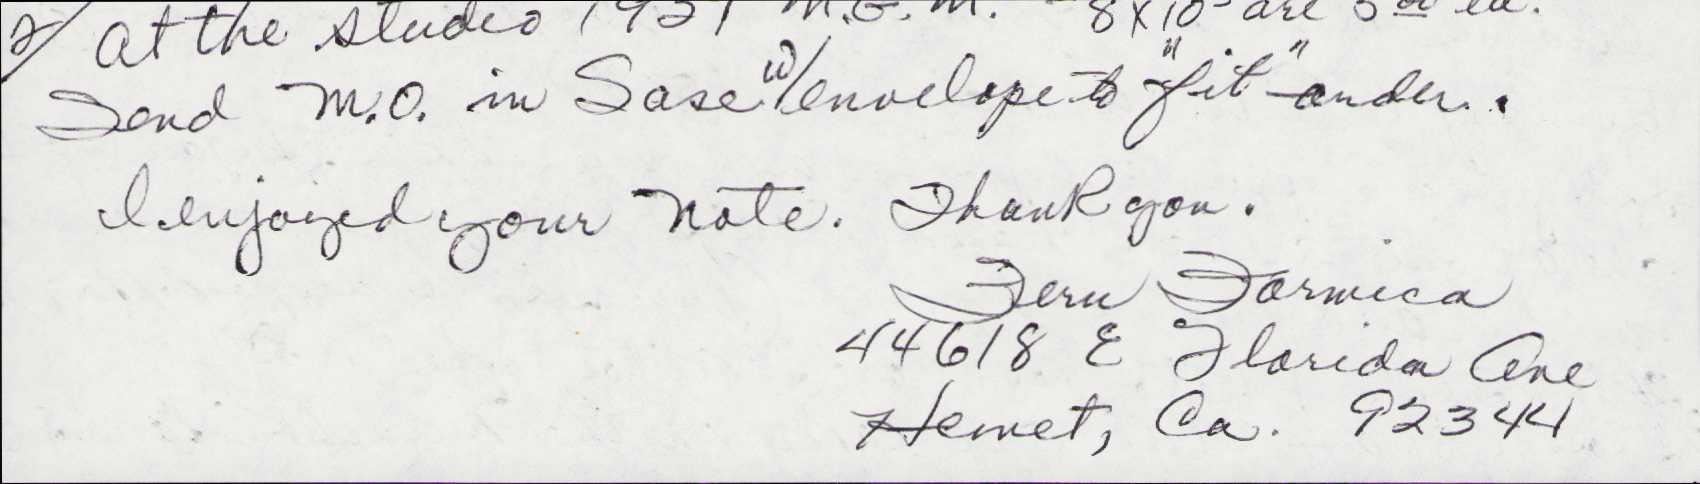 2/ at the studio 193? M.G.M. - 8x10s are 5.00 ea.
Send M.O. in Sase w/envelope to "fit" order.
I enjoyed your note. Thank you.
Fern Formica
44618 E Florida Ave
Hemet, Ca. 92344